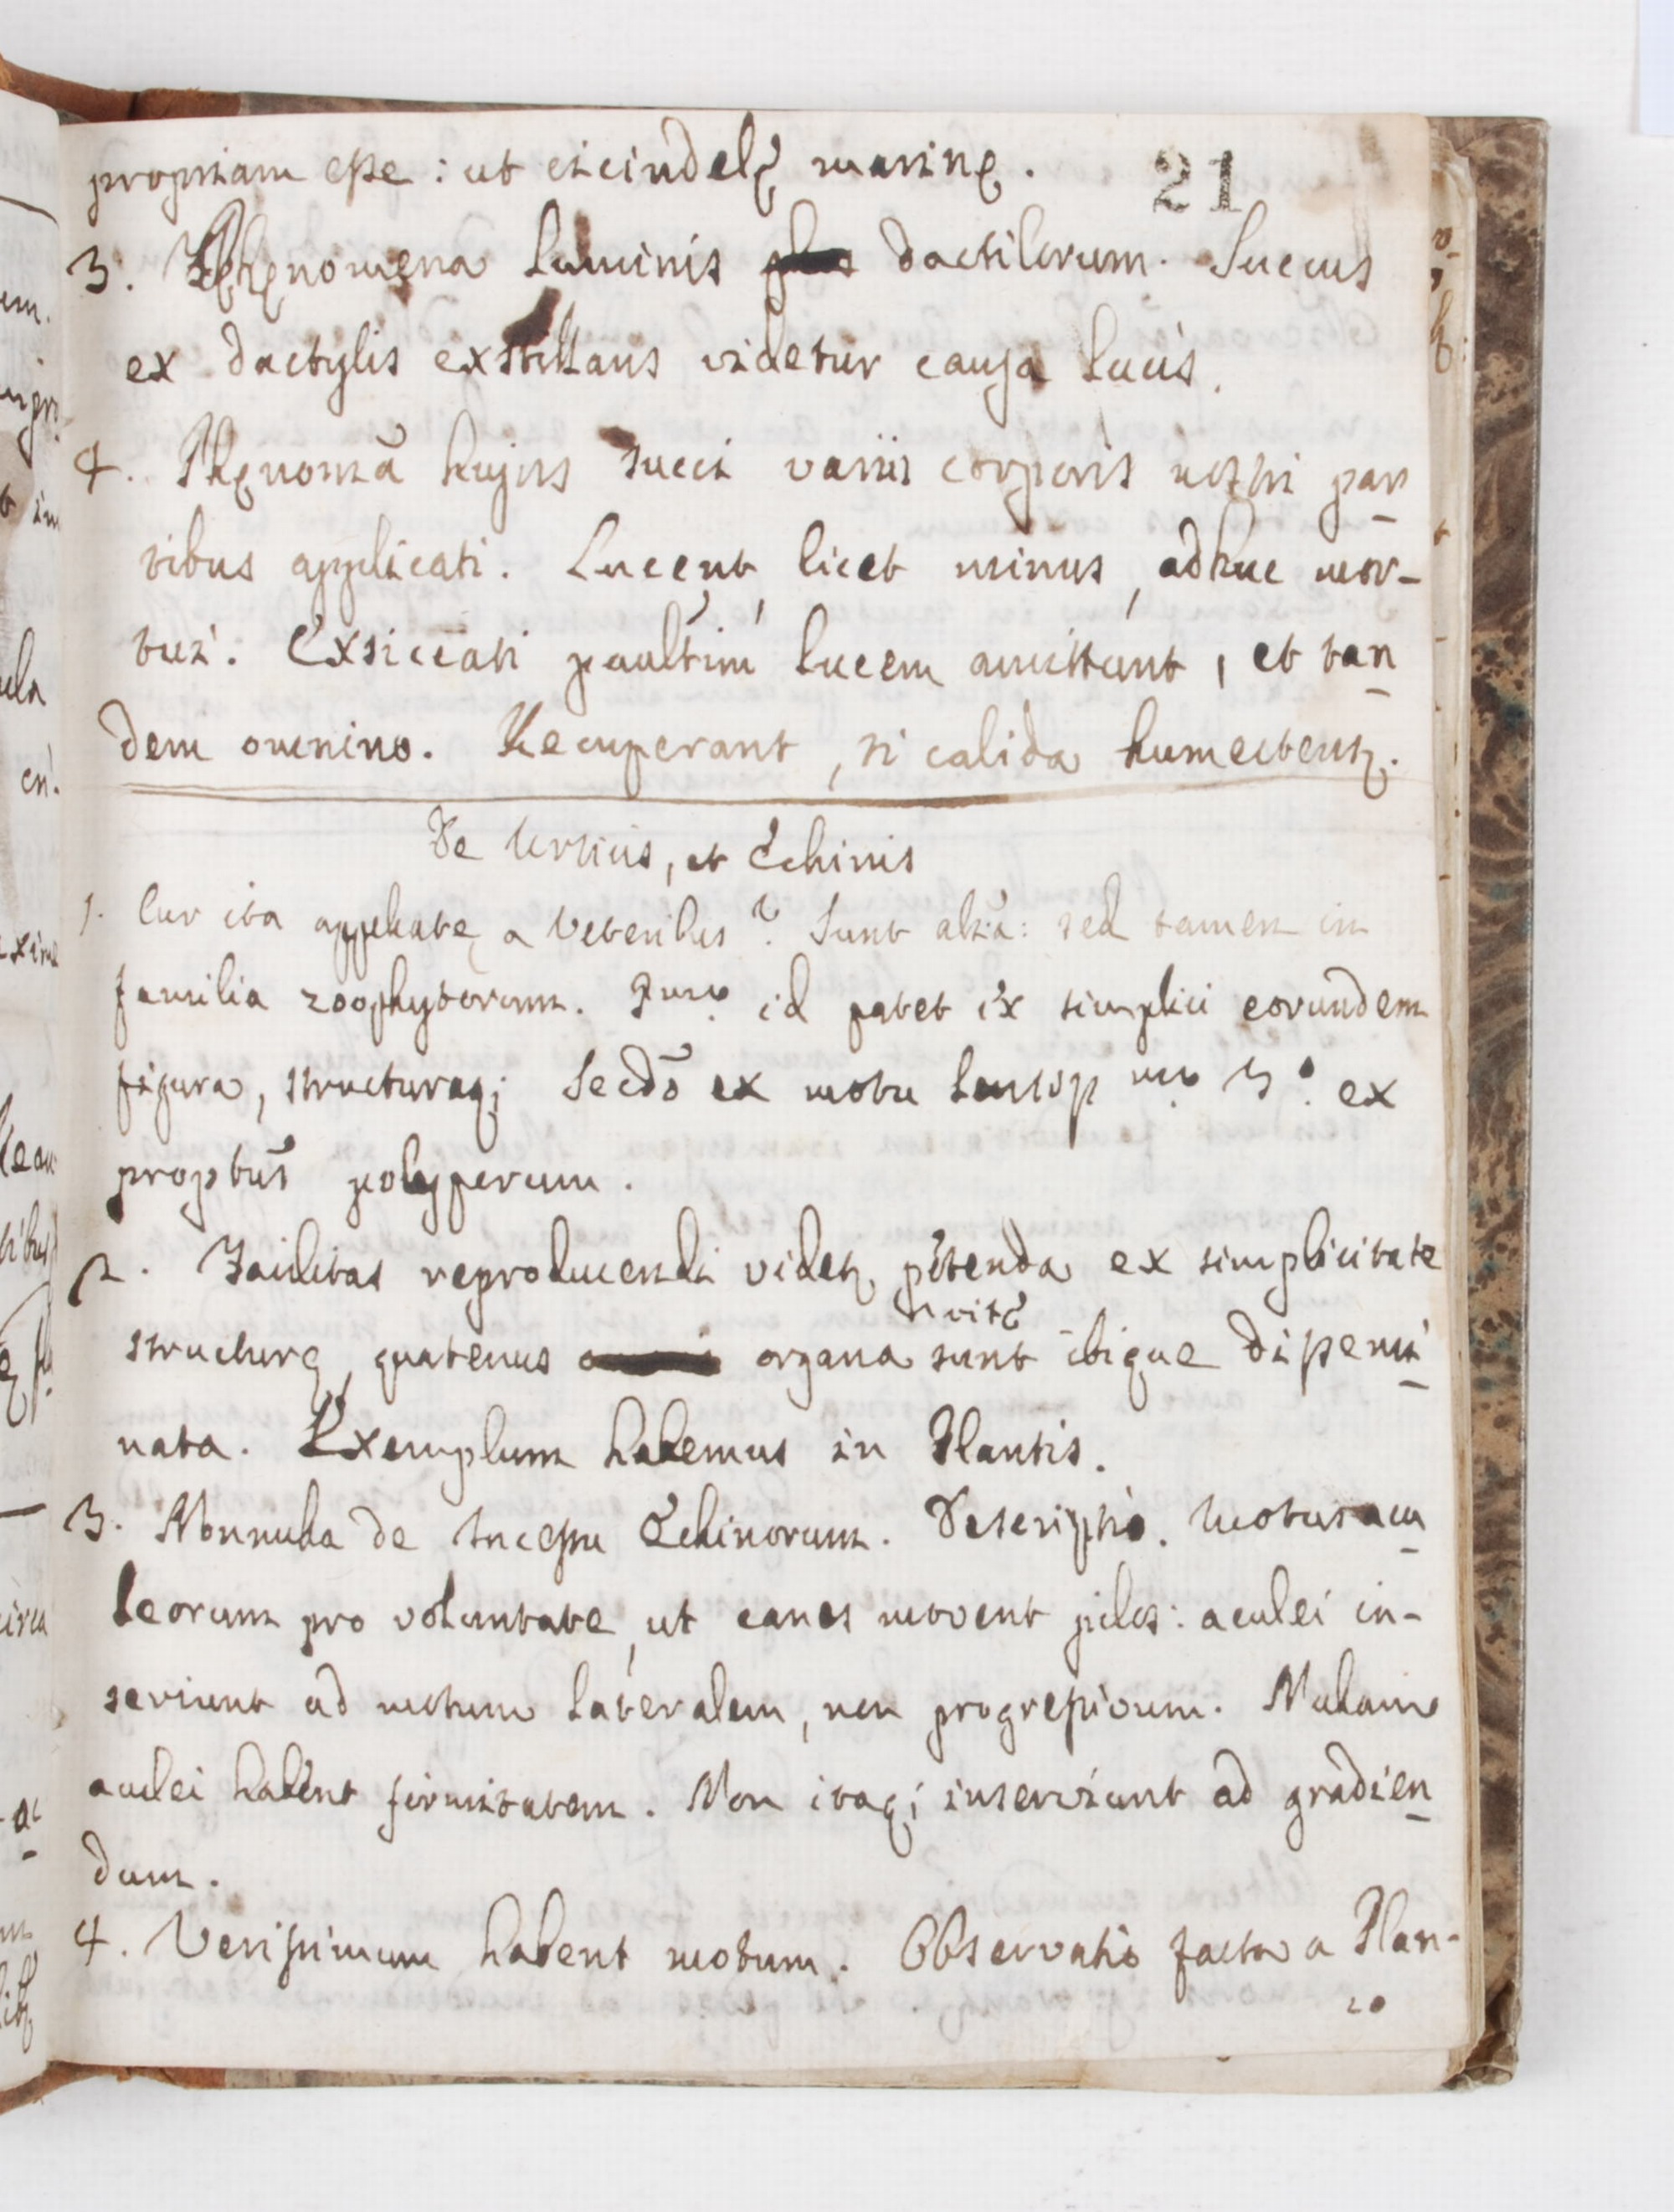 propriam esse : ut cicindelę marinę. 21
3. Phęnomena luminis dactilorum. Succus
ex dactylis exstillans videtur causa lucis.
4. Phęnomā hujus succi variis corporis nostri par
tibus applicati. Lucent, licet minus, adhuc mor-
tui. Exsiccati paultim lucem amittunt, et tan
dem omnino. Recuperant, si calida humectentr.
De Urticis, et Echinis
1. Cur ita appellatę a Veteribus? Sunt alia: sed tamen in
familia zoophytorum. Pmo. id patet ex simplici eorundem
figura, structuraq; Secdō ex motu 3.° ex
proptbus polyporum.
2. Facilitas reproducendi videtr petenda ex simplicitate
structurę, quatenus organa vitę sunt ibique dissemi
nata. Exemplum habemus in Plantis.
3. Nonnulla de incessu Echinorum. Descriptio. Motus acu
leorum pro voluntate, ut canes movent pilos: aculei in-
serviunt ad motum lateralem, non progressivum. Nullam
aculei habent firmitatem. Non itaq; inserviunt ad gradien
dum.
4. Verissimum habent motum. Observatio facta a Plan-
co